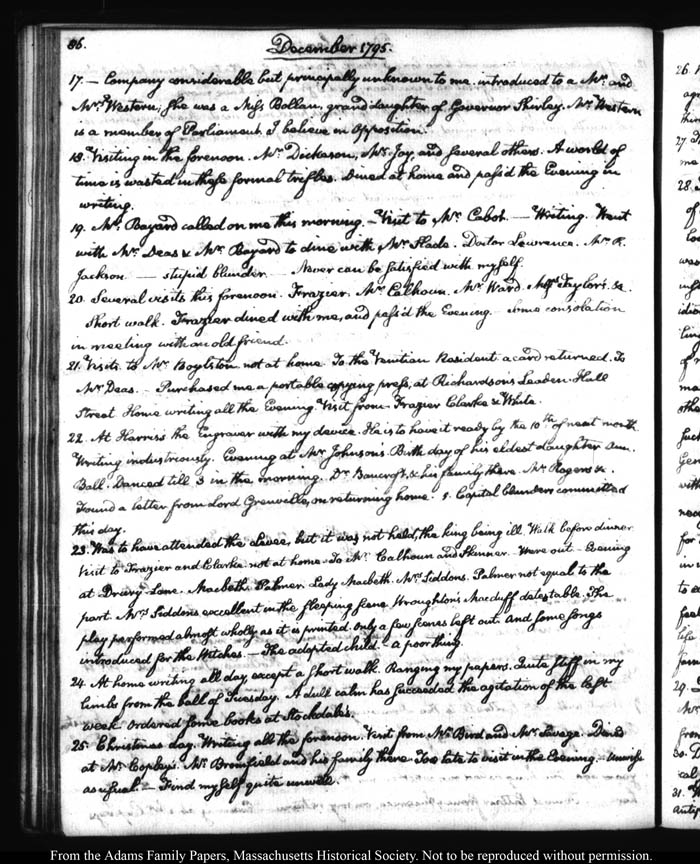 86.
December 1795.
17. — Company considerable but principally unknown to me. introduced to a Mr. and
Mrs. Western; she was a Miss Bollan, grand daughter of Governor Shirley. Mr. Western
is a member of Parliament. I believe in Opposition.
18. Visiting in the forenoon. Mr. Dickason, Mr. Joy, and several others. A world of
time is wasted in these formal trifles. Dined at home and pass'd the Evening in
writing.
19. Mr. Bayard called on me this morning. — Visit to Mr. Cabot. — Writing. Went
with Mr. Deas & Mr. Bayard to dine with Mr. Slade. Doctor Lawrence. Mr. R.
Jackson — stupid blunder — Never can be satisfied with myself.
20. Several visits this forenoon. Frazier, Mr. Calhoun. Mr. Ward. Taylor's. &c.
Short walk. Frazier dined with me, and pass'd the Evening. Some consolation
in meeting with an old friend.
21. Visits to Mr. Boylston not at home. To the Venitian Resident a card returned. To
Mr. Deas. — Purchased me a portable copying press, at Richardsons Leaden-Hall
Street. Home writing all the Evening. Visit from Frazier Clarke & White.
22. At Harris's the Engraver with my device. He is to have it ready by the 10th of next month.
Writing industriously. Evening at Mr. Johnson's. Birth day of his eldest daughter Ann.
Ball. Danced till 3 in the morning. Dr. Bancroft, & his family there. Mr. Rogers &c.
Found a letter from Lord Grenville, on returning home. Capital blunders committed
this day.
23. Was to have attended the Levee, but it was not held, the king being ill. Walk before dinner
Visit to Frazier and Clarke not at home. To Mr. Calhoun and Skinner. Were out. — Evening
at Drury Lane. Macbeth. Palmer. Lady Macbeth. Mrs. Siddons. Palmer not equal to the
part. Mrs. Siddons excellent in the sleeping scene. Wroughton's Macduff detestable. The
play performed almost wholly as it is printed. Only a few scenes left out. And some songs
introduced for the Witches. — The adopted child. — a poor thing.
24. At home writing all day, except a short walk. Ranging my papers. Quite stiff in my
limbs from the ball of Tuesday. A dull calm has succeeded the agitation of the last
week. Ordered some books at Stockdale's.
25. Christmas day. Writing all the forenoon. Visit from Mr. Bird and Mr. Savage. Dined
at Mr. Copley's. Mr. Bromfield and his family there. Too late to visit in the Evening. — Unwise
as usual. — Find myself quite unwell.
26.
27
28.
29.
30.
31.
From the Adams Family Papers, Massachusetts Historical Society. Not to be reproduced without permission.